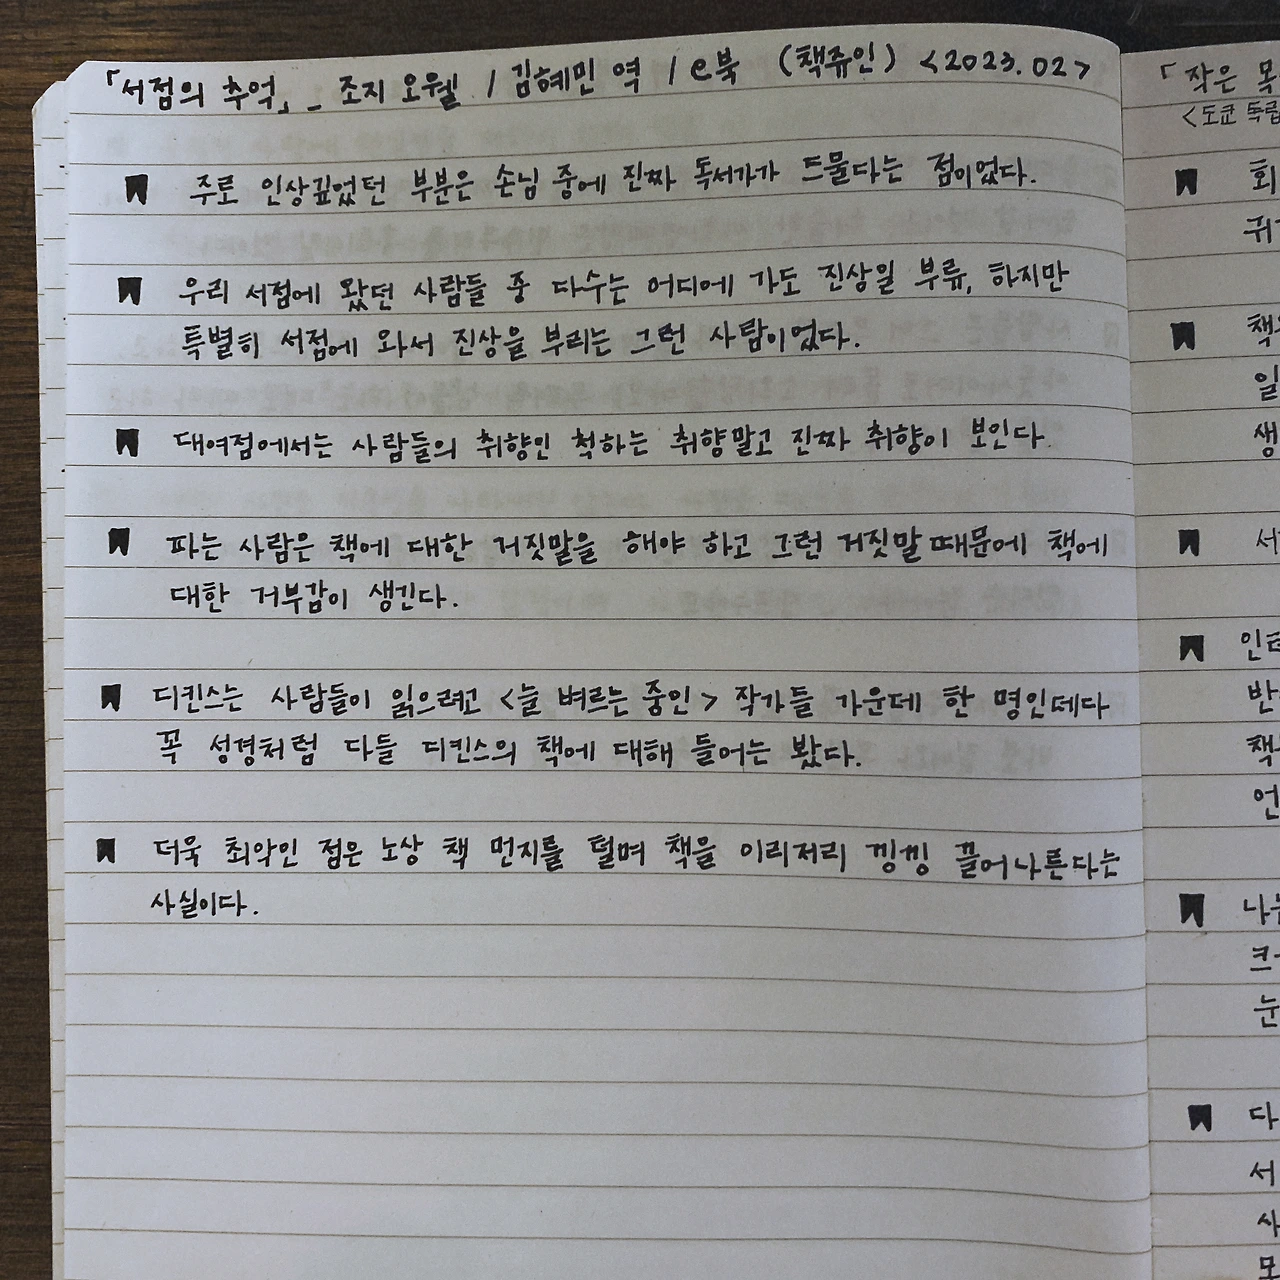 「서점의 추억」_ 조지 오웰 / 김혜민 역 / e북 (책쥬인) <2023.02>
주로 인상깊었던 부분은 손님 중에 진짜 독서가가 드물다는 점이었다.
우리 서점에 왔던 사람들 중 다수는 어디에 가도 진상일 부류, 하지만
특별히 서점에 와서 진상을 부리는 그런 사람이었다.
대여점에서는 사람들의 취향인 척하는 취향말고 진짜 취향이 보인다.
파는 사람은 책에 대한 거짓말을 해야 하고 그런 거짓말 때문에 책에
대한 거부감이 생긴다.
디킨스는 사람들이 읽으려고 <늘 벼르는 중인> 작가들 가운데 한 명인데다
꼭 성경처럼 다들 디킨스의 책에 대해 들어는 봤다.
더욱 최악인 점은 노상 책 먼지를 털며 책을 이리저리 낑낑 끌어나른다는
사실이다.
「작은 목
<도쿄 독립
회
귀
책
일
생
서
인터
반
책
언
나는
크
눈
다
서
사
모